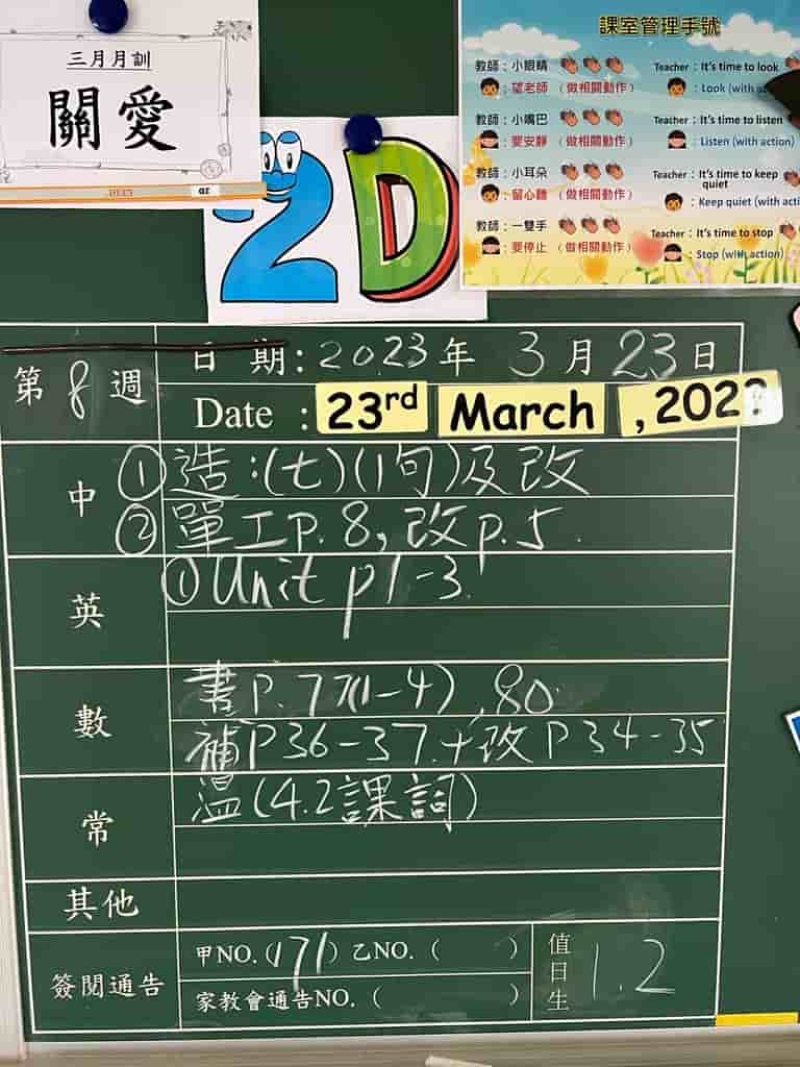 三月月訓
關愛
2D
課室管理手號
教師：小眼睛
：望老師（做相關動作）
教師：小嘴巴
：要安靜（做相關動作）
教師：小耳朵
：留心聽（做相關動作）
教師：一雙手
：要停止（做相關動作）
Teacher：It's time to look
：Look (with
Teacher：It's time to listen
：Listen (with action)
Teacher：It's time to keep
quiet
：Keep quiet (with acti
Teacher：It's time to stop
：Stop (with action)
第8週
日期：2023年3月23日
Date : 23rd March , 202
中
①造：(七)(1句)及改
②單工p.8, 改p.5.
英
①Unit p1-3.
數
書P.77(1-4), 80
補P36-37.+改P34-35
常
溫(4.2課詞)
其他
簽閱通告
甲NO.(171) 乙NO. ( )
家教會通告NO. ( )
值日生
1.2